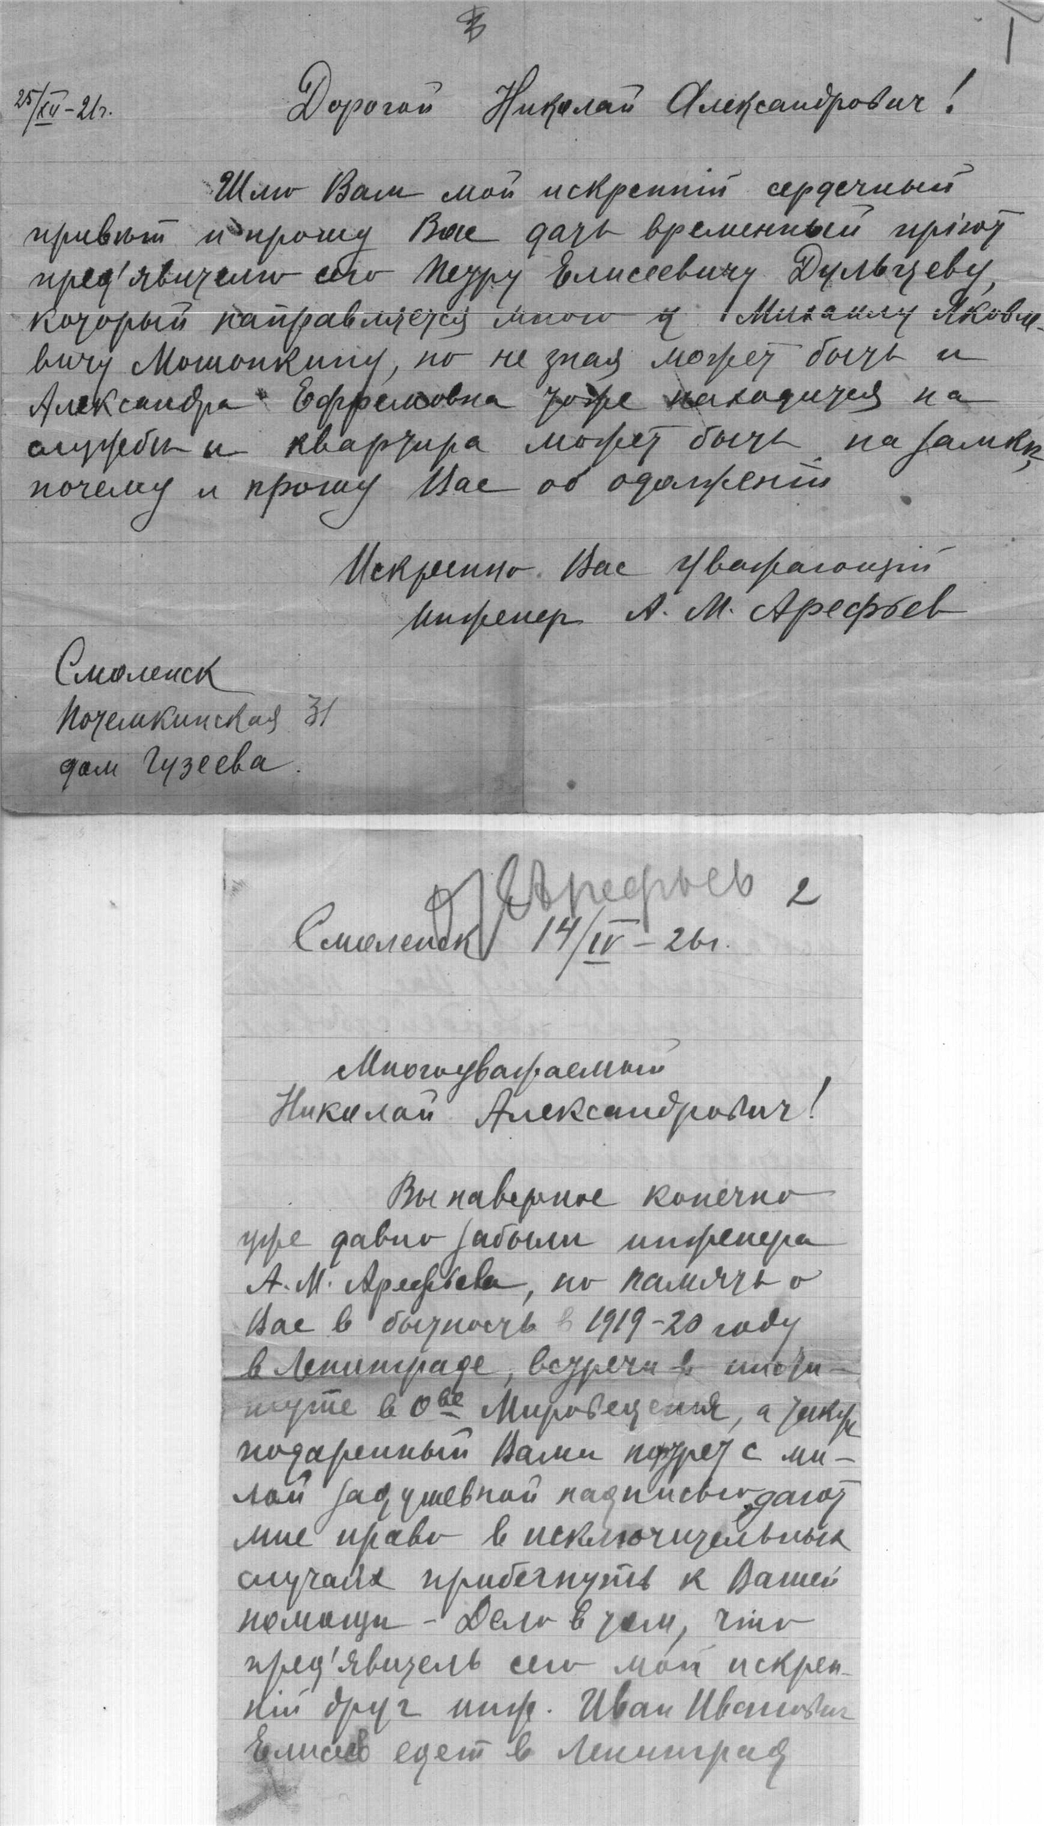 1
25/XII-21г.
Дорогой Николай Александрович!
Шлю Вам мой искреннiй сердечный
привѣт и прошу Вас дать временный прiют
пред'явителю сего Петру Елисеевичу Дульцеву,
который направляется мною к Михаилу Яковле-
вичу Мошонкину, но не зная может быть и
Александра Ефремовна тоже находится на
службѣ и квартира может быть на замкѣ,
почему и прошу Вас об одолженiи
Искренно Вас уважающiй
инженер А. М. Арефьев
Смоленск
Потемкинская 31
дом Гузеева.
Арефьев 2
Смоленск 14/IV-26г.
Многоуважаемый
Николай Александрович!
Вы наверное конечно
уже давно забыли инженера
А. М. Арефьева, но память о
Вас в бытность в 1919-20 году
в Ленинграде, встречи в инсти-
туте в Овѣ Мироведения, а также
подаренный Вами портрет с ми-
лой задушевной надписью дают
мне право в исключительных
случаях прибегнуть к Вашей
помощи - Дело в том, что
пред'явитель сего мой искрен-
нiй друг инж. Иван Иванович
Елисеев едет в Ленинград